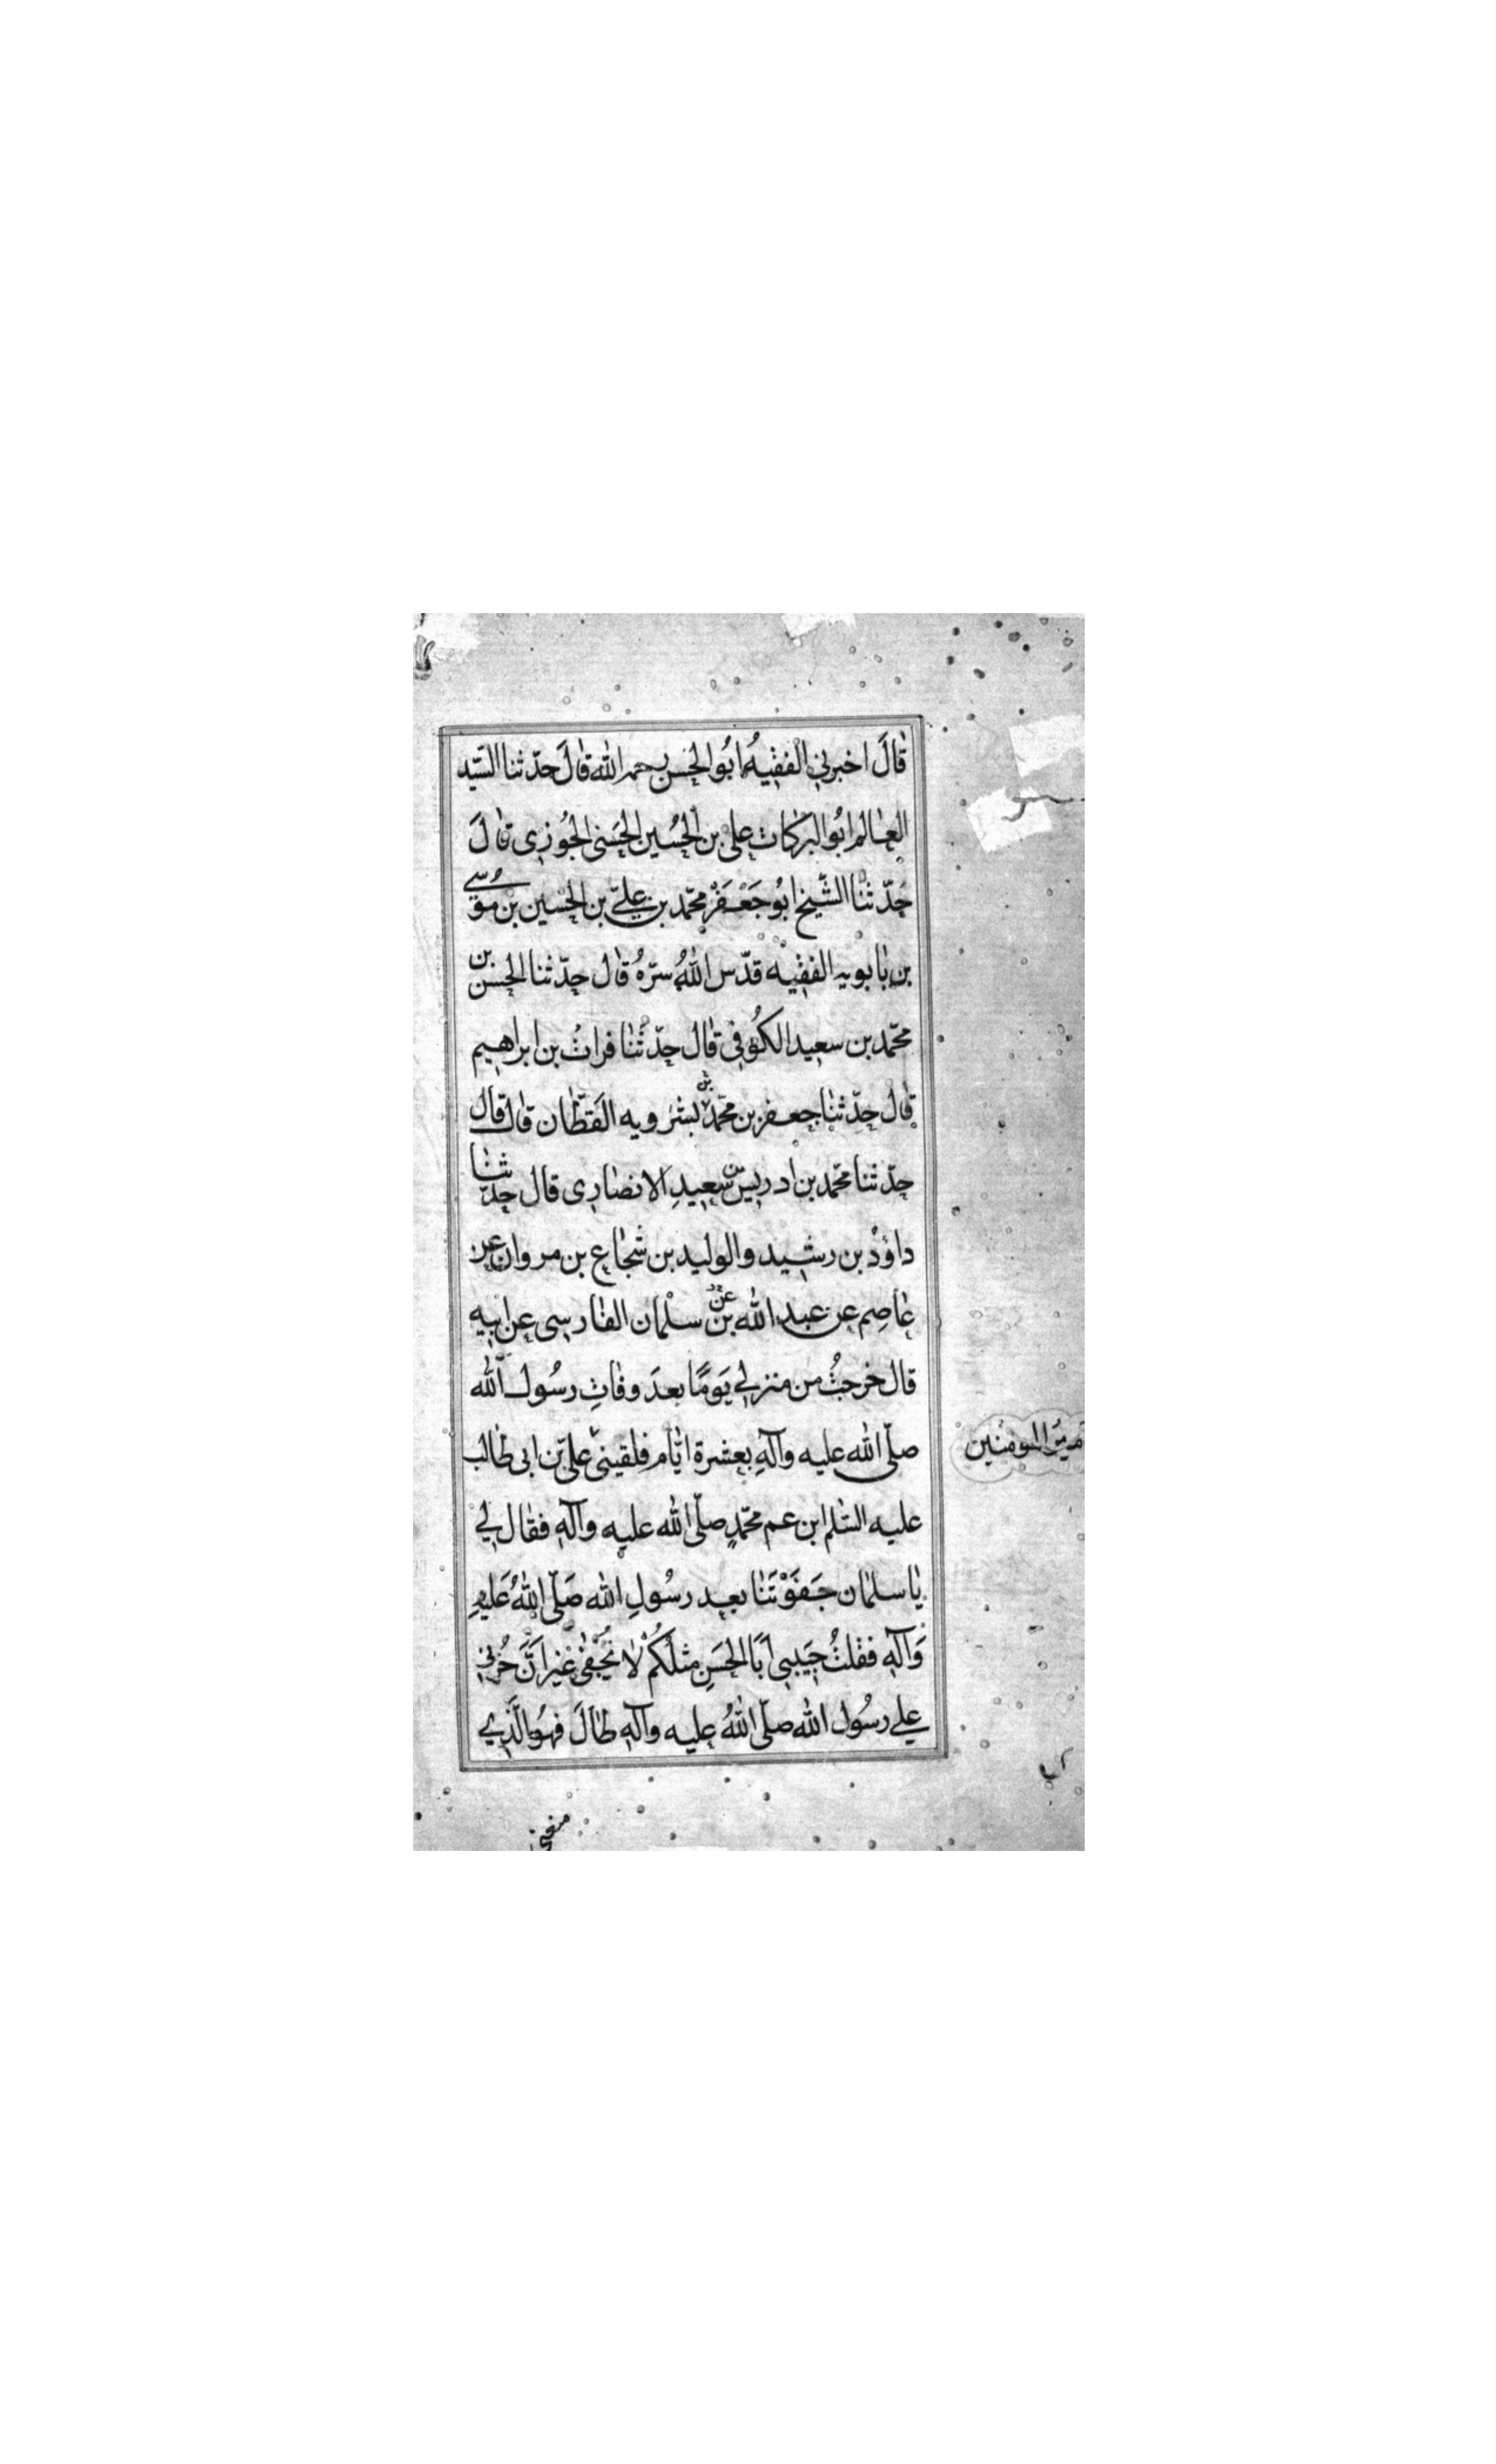 قَالَ اخبرني الفقيهُ ابُو الحسن رحمه الله قالَ حدّثنا السّيد
العالم ابُو البركات على بن الحُسين الحسَنى الجُوزى قالَ
حُدّثنا الشّيخ ابُو جَعْفَرْ محمّد بن عليّ بن الحسين بن مُوسٰے
بن بابويه الفقيه قدّس اللهُ سرّهُ قال حدّثنا الحسن بن
محمّد بن سعيد الكُوفىّ قال حدّثنا فراتُ بن ابراهيم
قال حدّثنا جعفر بن محمّد بن بشرويه القَطّان قال قال
حدّثنا محمّد بن ادريس بن سَعِيدِ الانصارى قال حدّثنا
داؤدْ بن رشيد والوليد بن شجاع بن مروان عن
عاصِم عن عبد الله بن عن سلْمان الفارسى عن ابيه
قال خرجتُ من منزلى يَومًا بعدَ وفاتِ رسُول الله
صلّى الله عليه وآلهِ بعشرة ايّام فلقينى علىّ بن ابى طالب
عليه السّلم ابن عم محمّدٍ صلّى الله عليه وآلهِ فقال لي
يا سلمان جَفَوْتَنا بعد رسُولِ الله صَلّى اللهُ عَليهِ
وَآلهِ فقلتُ حَبيبى ابَا الحسَنِ مثلُكُمْ لا يُجْفٰى غير اَنَّ حُزنى
على رسُول الله صلّى اللهُ عليه وآلهِ طالَ فهُو الَّذِي
ميرُ المومنين
منعنى